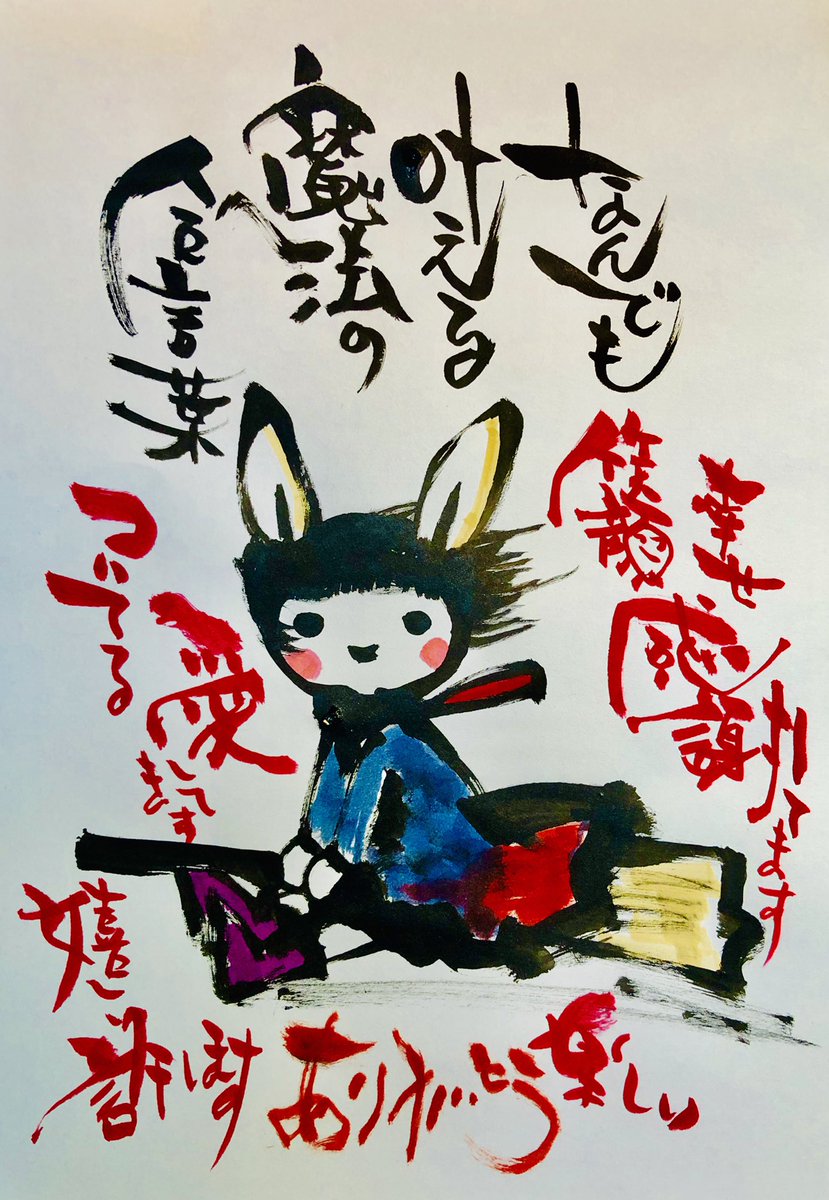 なんでも
叶える
魔法の
合言葉
幸せ
笑顔
感謝してます
ついてる
愛してます
嬉しい
許します
ありがとう
楽しい